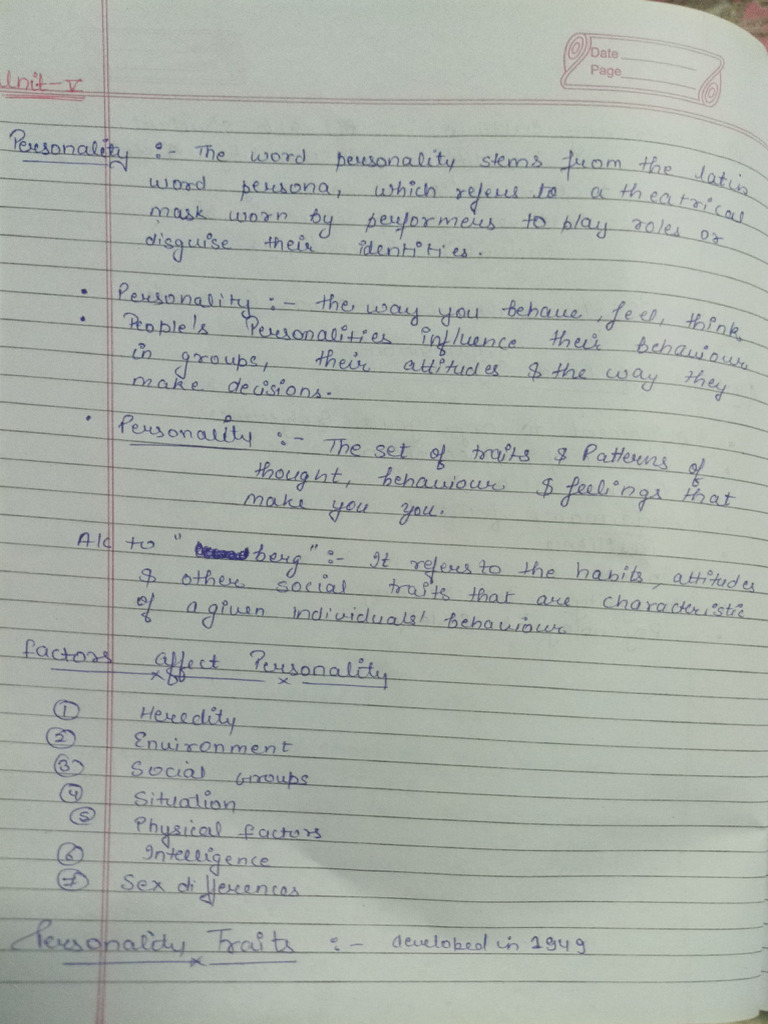 Date
Page
Unit-V
Personality :- The word personality stems from the latin
word persona, which refers to a theatrical
mask worn by performers to play roles or
disguise their identities.
• Personality :- the way you behave, feel, think.
• People's Personalities influence their behaviour
in groups, their attitudes & the way they
make decisions.
• Personality :- The set of traits & Patterns of
thought, behaviour & feelings that
make you you.
A/c to " berg" :- It refers to the habits, attitudes
& other social traits that are characteristic
of a given individuals' behaviour
factors affect Personality
① Heredity
② Environment
③ Social Groups
④ Situation
⑤ Physical factors
⑥ Intelligence
⑦ Sex differences
Personality Traits :- developed in 1949